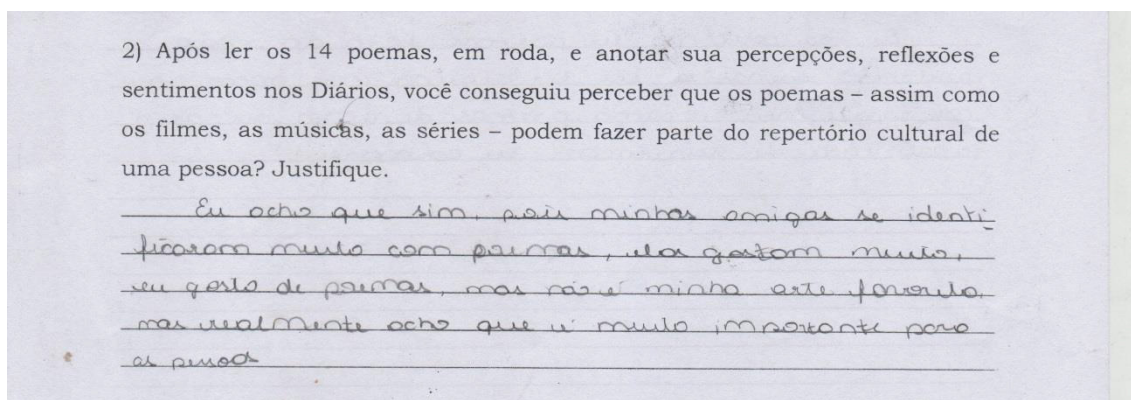 2) Após ler os 14 poemas, em roda, e anotar sua percepções, reflexões e
sentimentos nos Diários, você conseguiu perceber que os poemas – assim como
os filmes, as músicas, as séries – podem fazer parte do repertório cultural de
uma pessoa? Justifique.
Eu acho que sim, pois minhas amigas se identi-
ficaram muito com poemas, elas gostam muito,
eu gosto de poemas, mas não é minha arte favorita,
mas realmente acho que é muito importante para
as pessoas